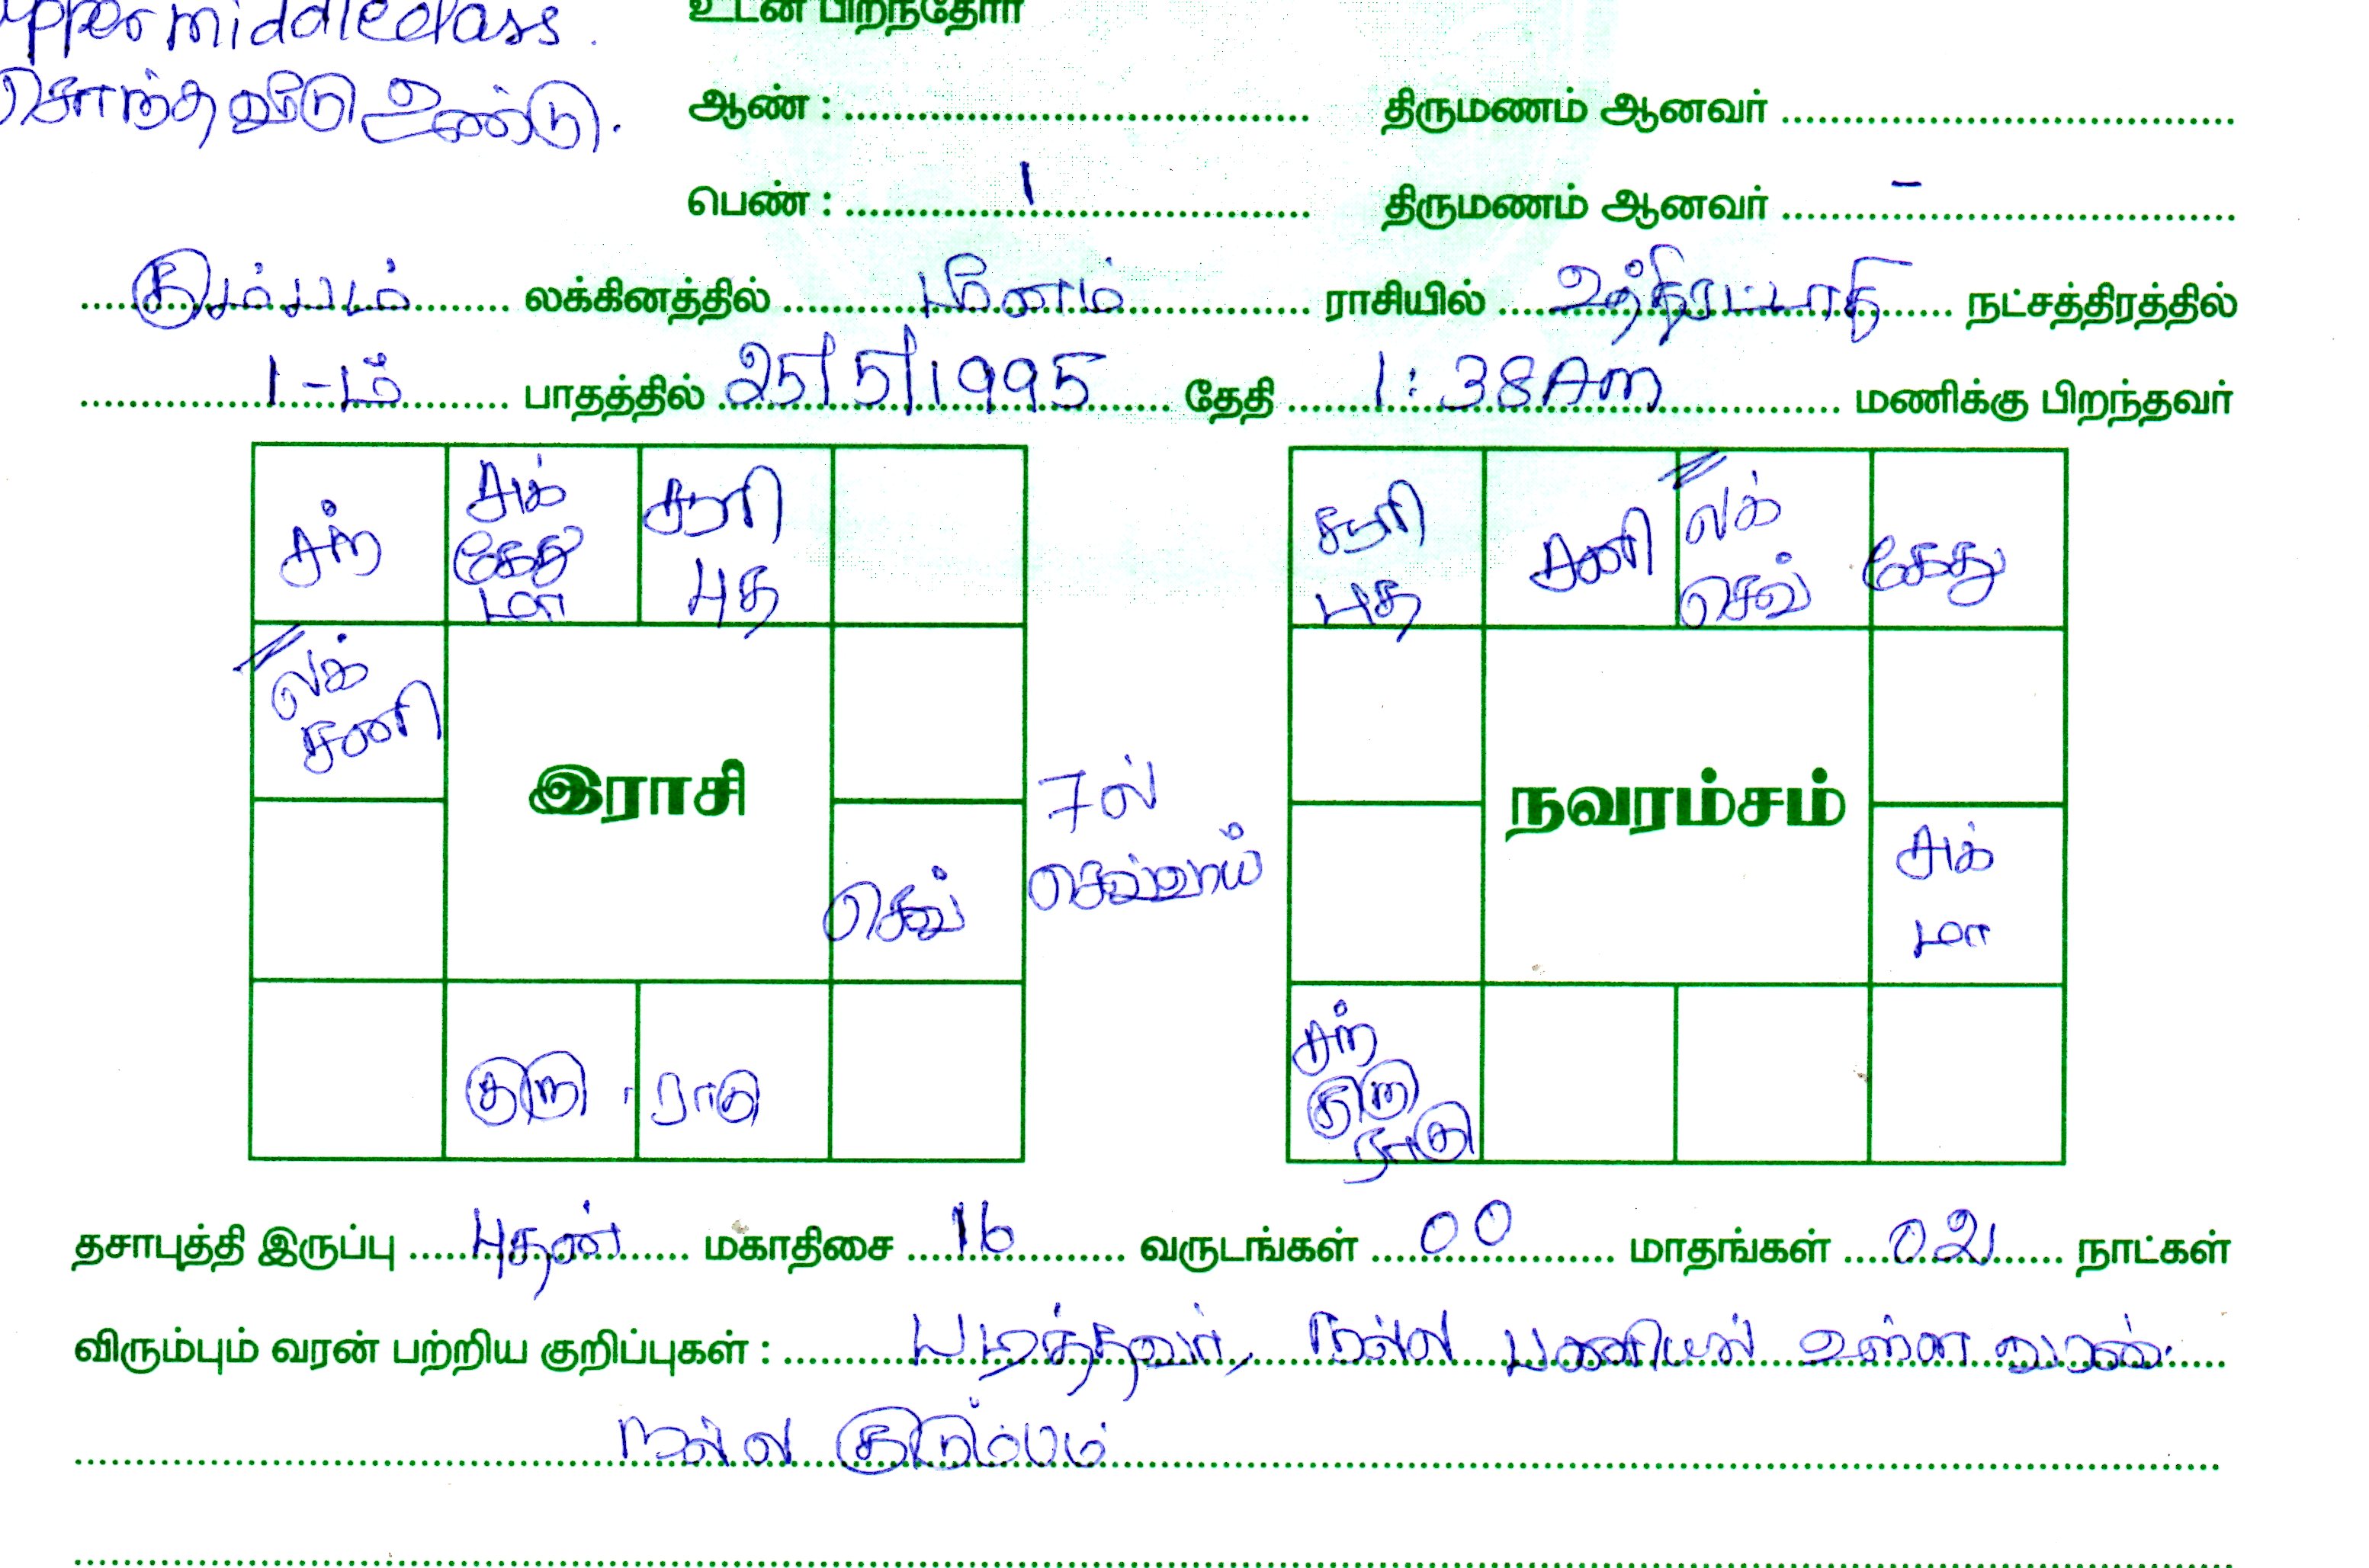 upper middle class.
உடன் பிறந்தோர்
சொந்த வீடு உண்டு.
ஆண் : திருமணம் ஆனவர்
பெண் : 1 திருமணம் ஆனவர் -
கும்பம் லக்கினத்தில் மீனம் ராசியில் உத்திரட்டாதி நட்சத்திரத்தில்
1-ம் பாதத்தில் 25/5/1995 தேதி 1:38 Am மணிக்கு பிறந்தவர்
சந்
சுக்
கேது
மா
சூரி
புத
லக்
சனி
இராசி
செவ்
குரு
ராகு
7ல்
செவ்வாய்
சூரி
புத
சனி
லக்
செவ்
கேது
நவரம்சம்
சுக்
மா
சந்
குரு
ராகு
தசாபுத்தி இருப்பு புதன் மகாதிசை 16 வருடங்கள் 00 மாதங்கள் 02 நாட்கள்
விரும்பும் வரன் பற்றிய குறிப்புகள் : படித்தவர், நல்ல பணியில் உள்ள வரன்.
நல்ல குடும்பம்